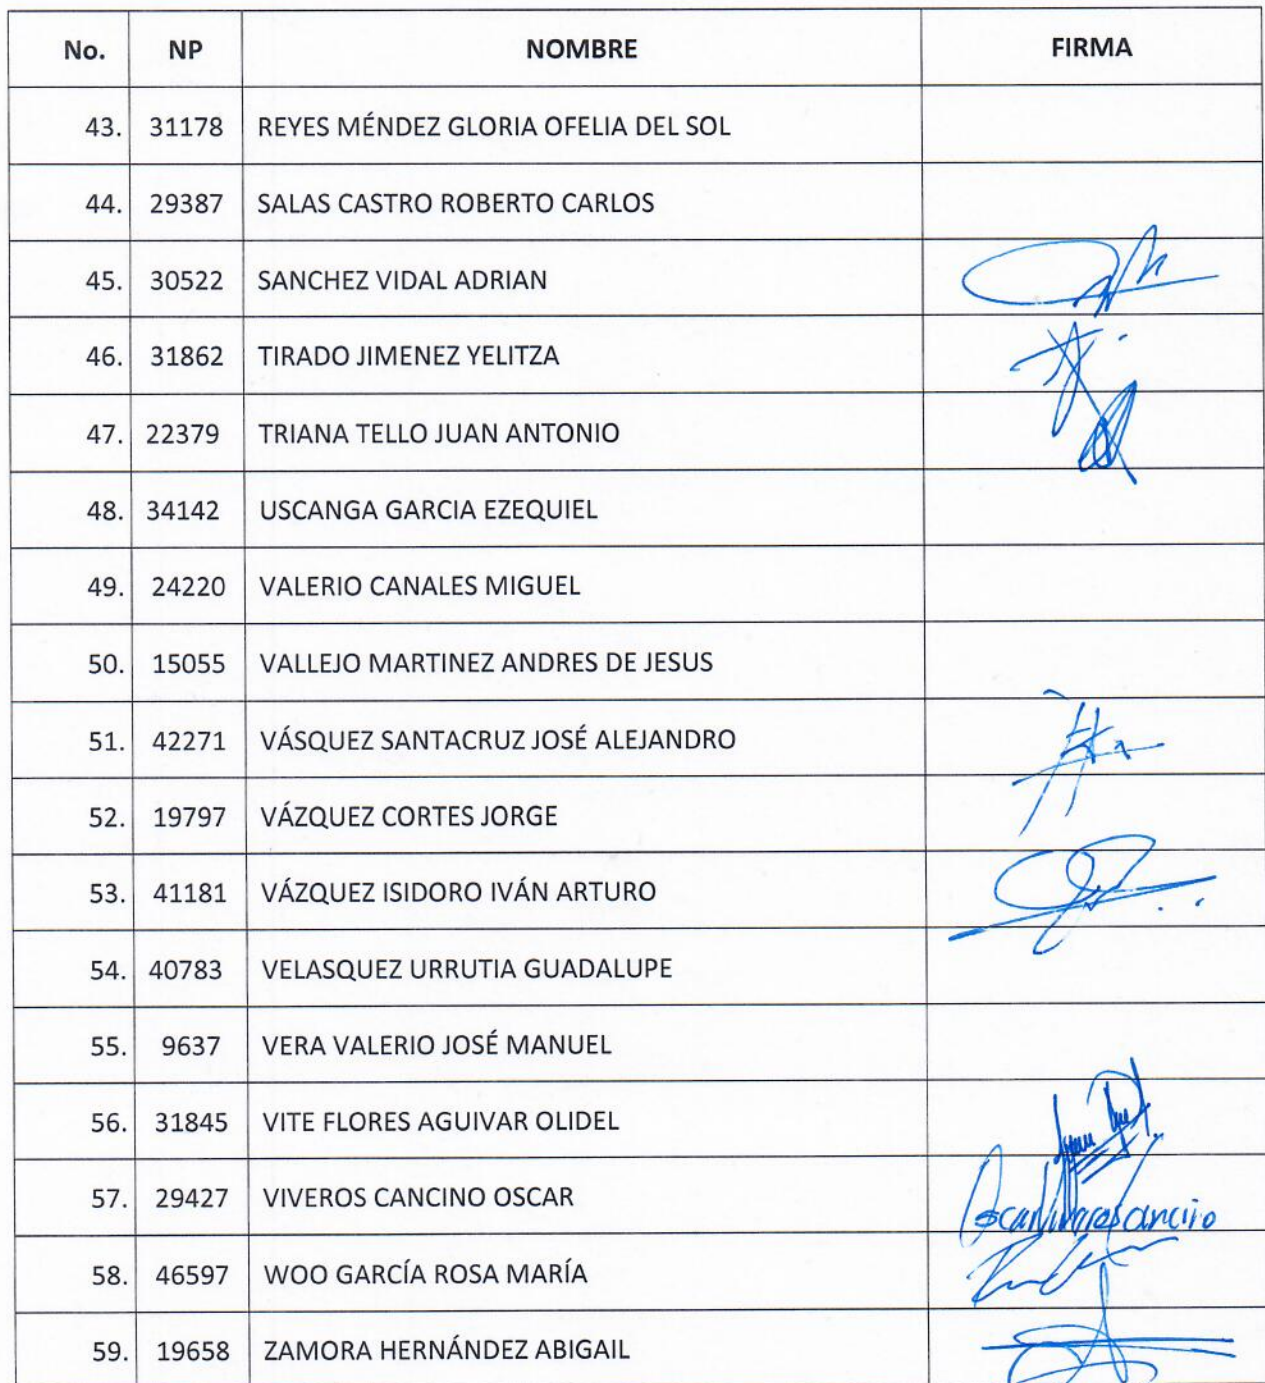 No. NP NOMBRE FIRMA
43. 31178 REYES MÉNDEZ GLORIA OFELIA DEL SOL
44. 29387 SALAS CASTRO ROBERTO CARLOS
45. 30522 SANCHEZ VIDAL ADRIAN
46. 31862 TIRADO JIMENEZ YELITZA
47. 22379 TRIANA TELLO JUAN ANTONIO
48. 34142 USCANGA GARCIA EZEQUIEL
49. 24220 VALERIO CANALES MIGUEL
50. 15055 VALLEJO MARTINEZ ANDRES DE JESUS
51. 42271 VÁSQUEZ SANTACRUZ JOSÉ ALEJANDRO
52. 19797 VÁZQUEZ CORTES JORGE
53. 41181 VÁZQUEZ ISIDORO IVÁN ARTURO
54. 40783 VELASQUEZ URRUTIA GUADALUPE
55. 9637 VERA VALERIO JOSÉ MANUEL
56. 31845 VITE FLORES AGUIVAR OLIDEL
57. 29427 VIVEROS CANCINO OSCAR
58. 46597 WOO GARCÍA ROSA MARÍA
59. 19658 ZAMORA HERNÁNDEZ ABIGAIL